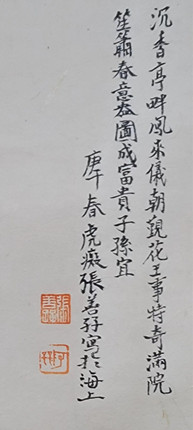 沉香亭畔鳳來儀朝覲花王事特奇滿院
笙簫春意盎圖成富貴子孫宜
庚午春虎癡張善孖寫於海上